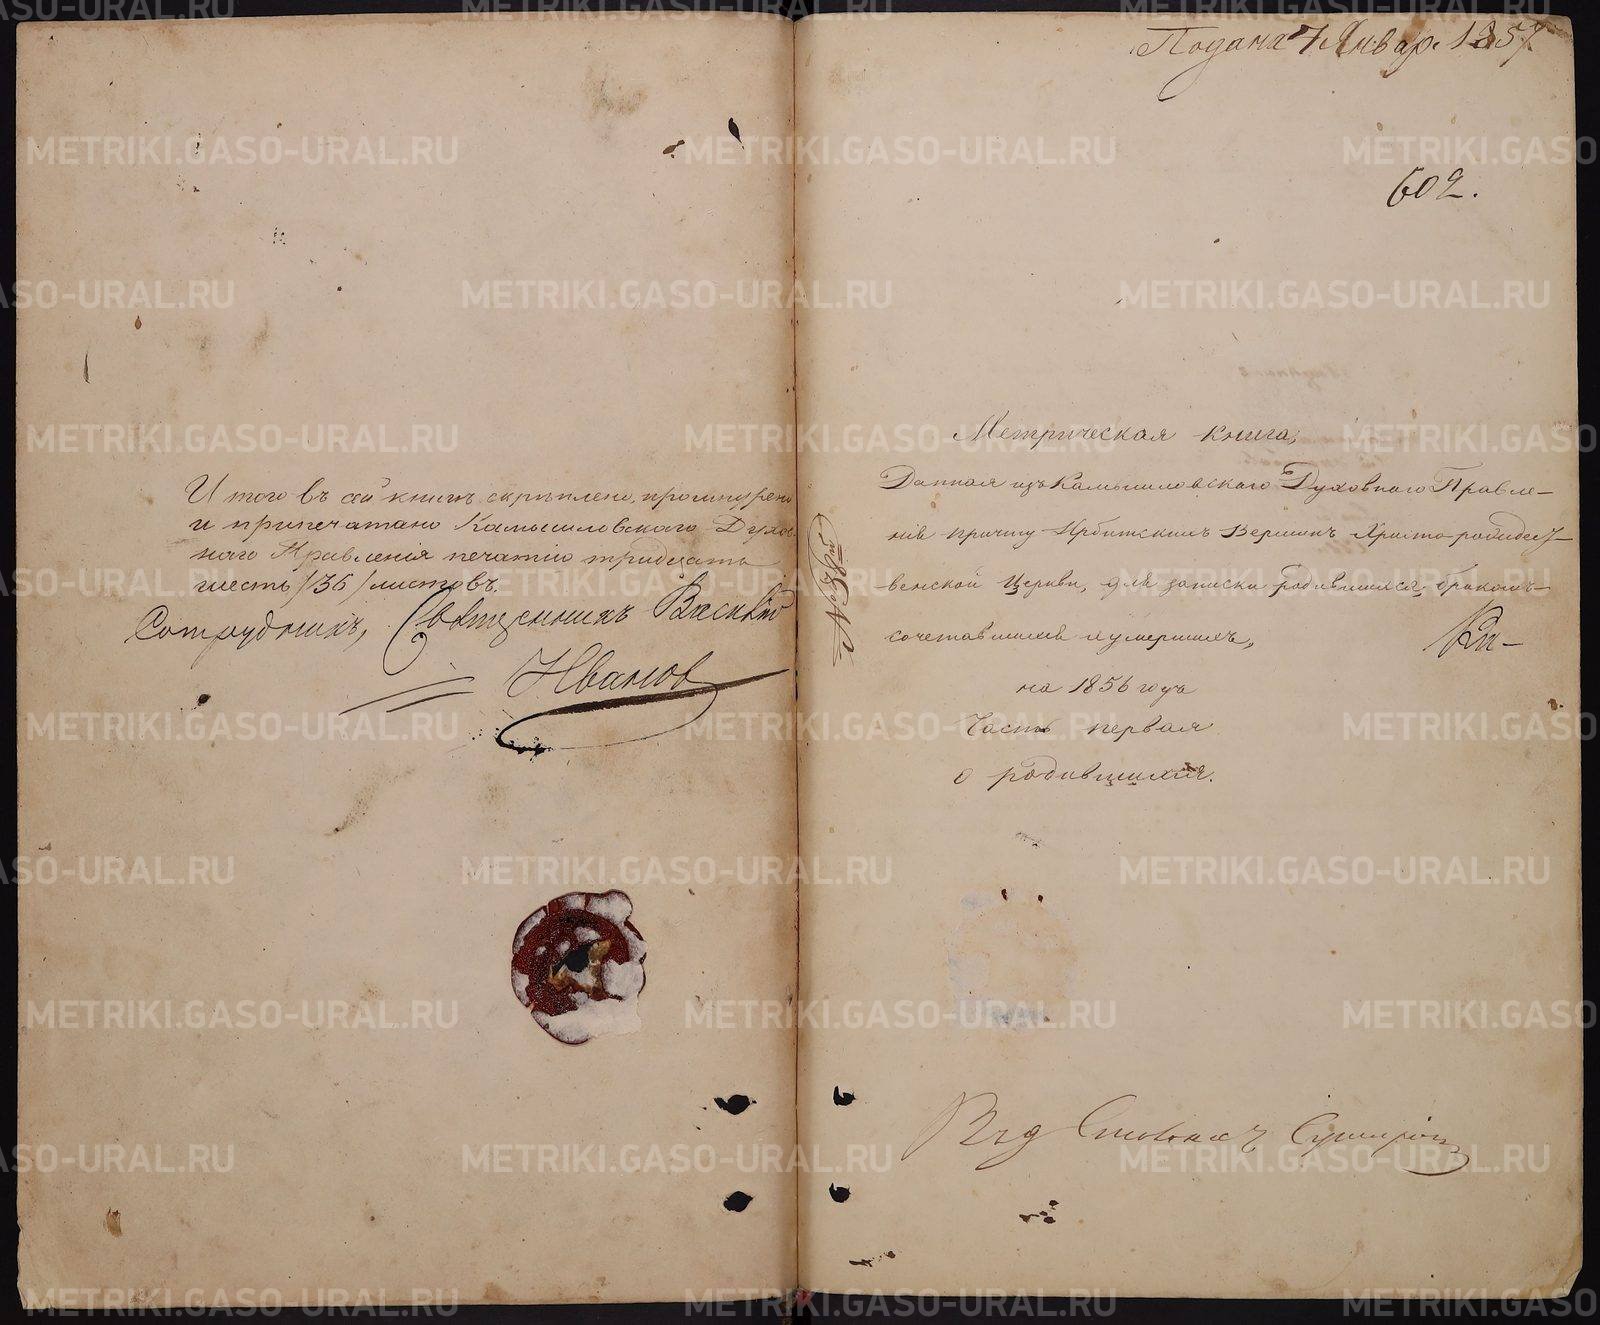 И того въ сей книгѣ скрѣплено, прошнурено
и припечатано Камышловскаго Духов-
наго Правленія печатію тридцать
шесть /36/ листовъ.
Сотрудникъ, Священникъ Василій
Ивановъ
Подана 7 Январ. 1857
602.
Метрическая книга,
Данная изъ Камышловскаго Духовнаго Правле-
нія причту Ирбитскихъ Вершинъ Христорождест-
венской Церкви, для записки родившихся, бракомъ
сочетавшихся и умершихъ,
на 1856 годъ
Часть первая
о родившихся.
№ 38й
METRIKI.GASO-URAL.RU